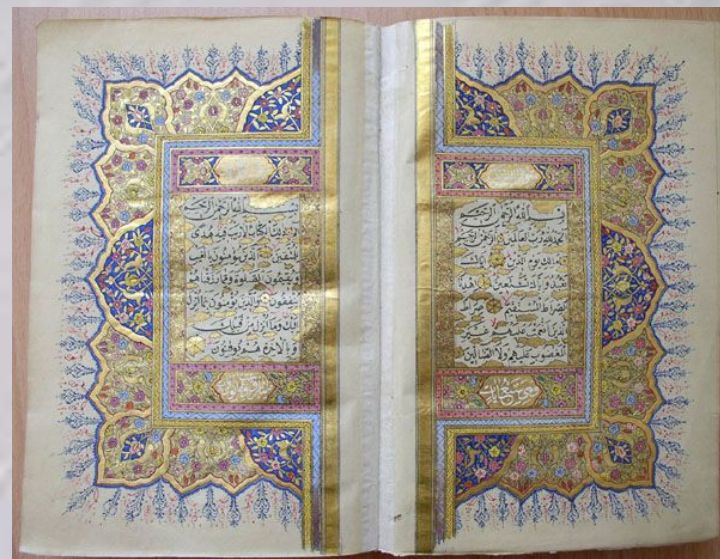 بسم الله الرحمن الرحيم
الحمد لله رب العالمين الرحمن الرحيم
مالك يوم الدين اياك
نعبد واياك نستعين اهدنا
الصراط المستقيم صراط
الذين انعمت عليهم غير
المغضوب عليهم ولا الضالين
بسم الله الرحمن الرحيم
الم ذلك الكتاب لا ريب فيه هدى
للمتقين الذين يؤمنون بالغيب
ويقيمون الصلوة ومما رزقناهم
ينفقون والذين يؤمنون بما انزل
اليك وما انزل من قبلك
وبالاخرة هم يوقنون